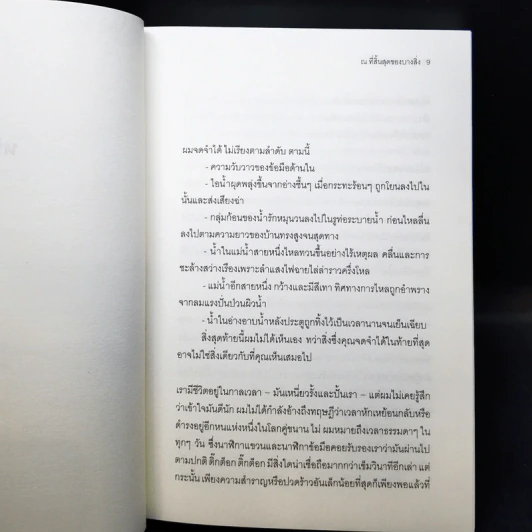 ณ ที่สิ้นสุดของบางสิ่ง 9
ผมจดจำได้ ไม่เรียงตามลำดับ ตามนี้
- ความวับวาวของข้อมือด้านใน
- ไอน้ำผุดพลุ่งขึ้นจากอ่างชื้นๆ เมื่อกระทะร้อนๆ ถูกโยนลงไปใน
นั้นและส่งเสียงฉ่า
- กลุ่มก้อนของน้ำรักหมุนวนลงไปในรูท่อระบายน้ำ ก่อนไหลลื่น
ลงไปตามความยาวของบ้านทรงสูงจนสุดทาง
- น้ำในแม่น้ำสายหนึ่งไหลทวนขึ้นอย่างไร้เหตุผล คลื่นและการ
ชะล้างสว่างเรืองเพราะลำแสงไฟฉายไล่ล่าราวครึ่งโหล
- แม่น้ำอีกสายหนึ่ง กว้างและมีสีเทา ทิศทางการไหลถูกอำพราง
จากลมแรงปั่นป่วนผิวน้ำ
- น้ำในอ่างอาบน้ำหลังประตูถูกทิ้งไว้เป็นเวลานานจนเย็นเฉียบ
สิ่งสุดท้ายนี้ผมไม่ได้เห็นเอง ทว่าสิ่งซึ่งคุณจดจำได้ในท้ายที่สุด
อาจไม่ใช่สิ่งเดียวกับที่คุณเห็นเสมอไป
เรามีชีวิตอยู่ในกาลเวลา – มันเหนี่ยวรั้งและปั้นเรา – แต่ผมไม่เคยรู้สึก
ว่าเข้าใจมันดีนัก ผมไม่ได้กำลังอ้างถึงทฤษฎีว่าเวลาหักเหย้อนกลับหรือ
ดำรงอยู่อีกหนแห่งหนึ่งในโลกคู่ขนาน ไม่ ผมหมายถึงเวลาธรรมดาๆ ใน
ทุกๆ วัน ซึ่งนาฬิกาแขวนและนาฬิกาข้อมือคอยรับรองเราว่ามันผ่านไป
ตามปกติ ติ๊กต็อก ติ๊กต็อก มีสิ่งใดน่าเชื่อถือมากกว่าเข็มวินาทีอีกเล่า แต่
กระนั้น เพียงความสำราญหรือปวดร้าวอันเล็กน้อยที่สุดก็เพียงพอแล้วที่